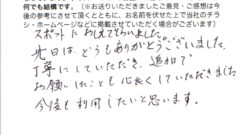 何でも結構です。（※お送りいただきましたご意見・ご感想は今
後の参考にさせて頂くとともに、お名前を伏せた上で当社のチラ
シ・ホームページなどに掲載させていただく場合がございます。）
スポットにおしえてもらいました。
先日はどうもありがとうございました。
丁寧にしていただき、追加で
お願いしたことも心良くしていただきました
今後も利用したいと思います。